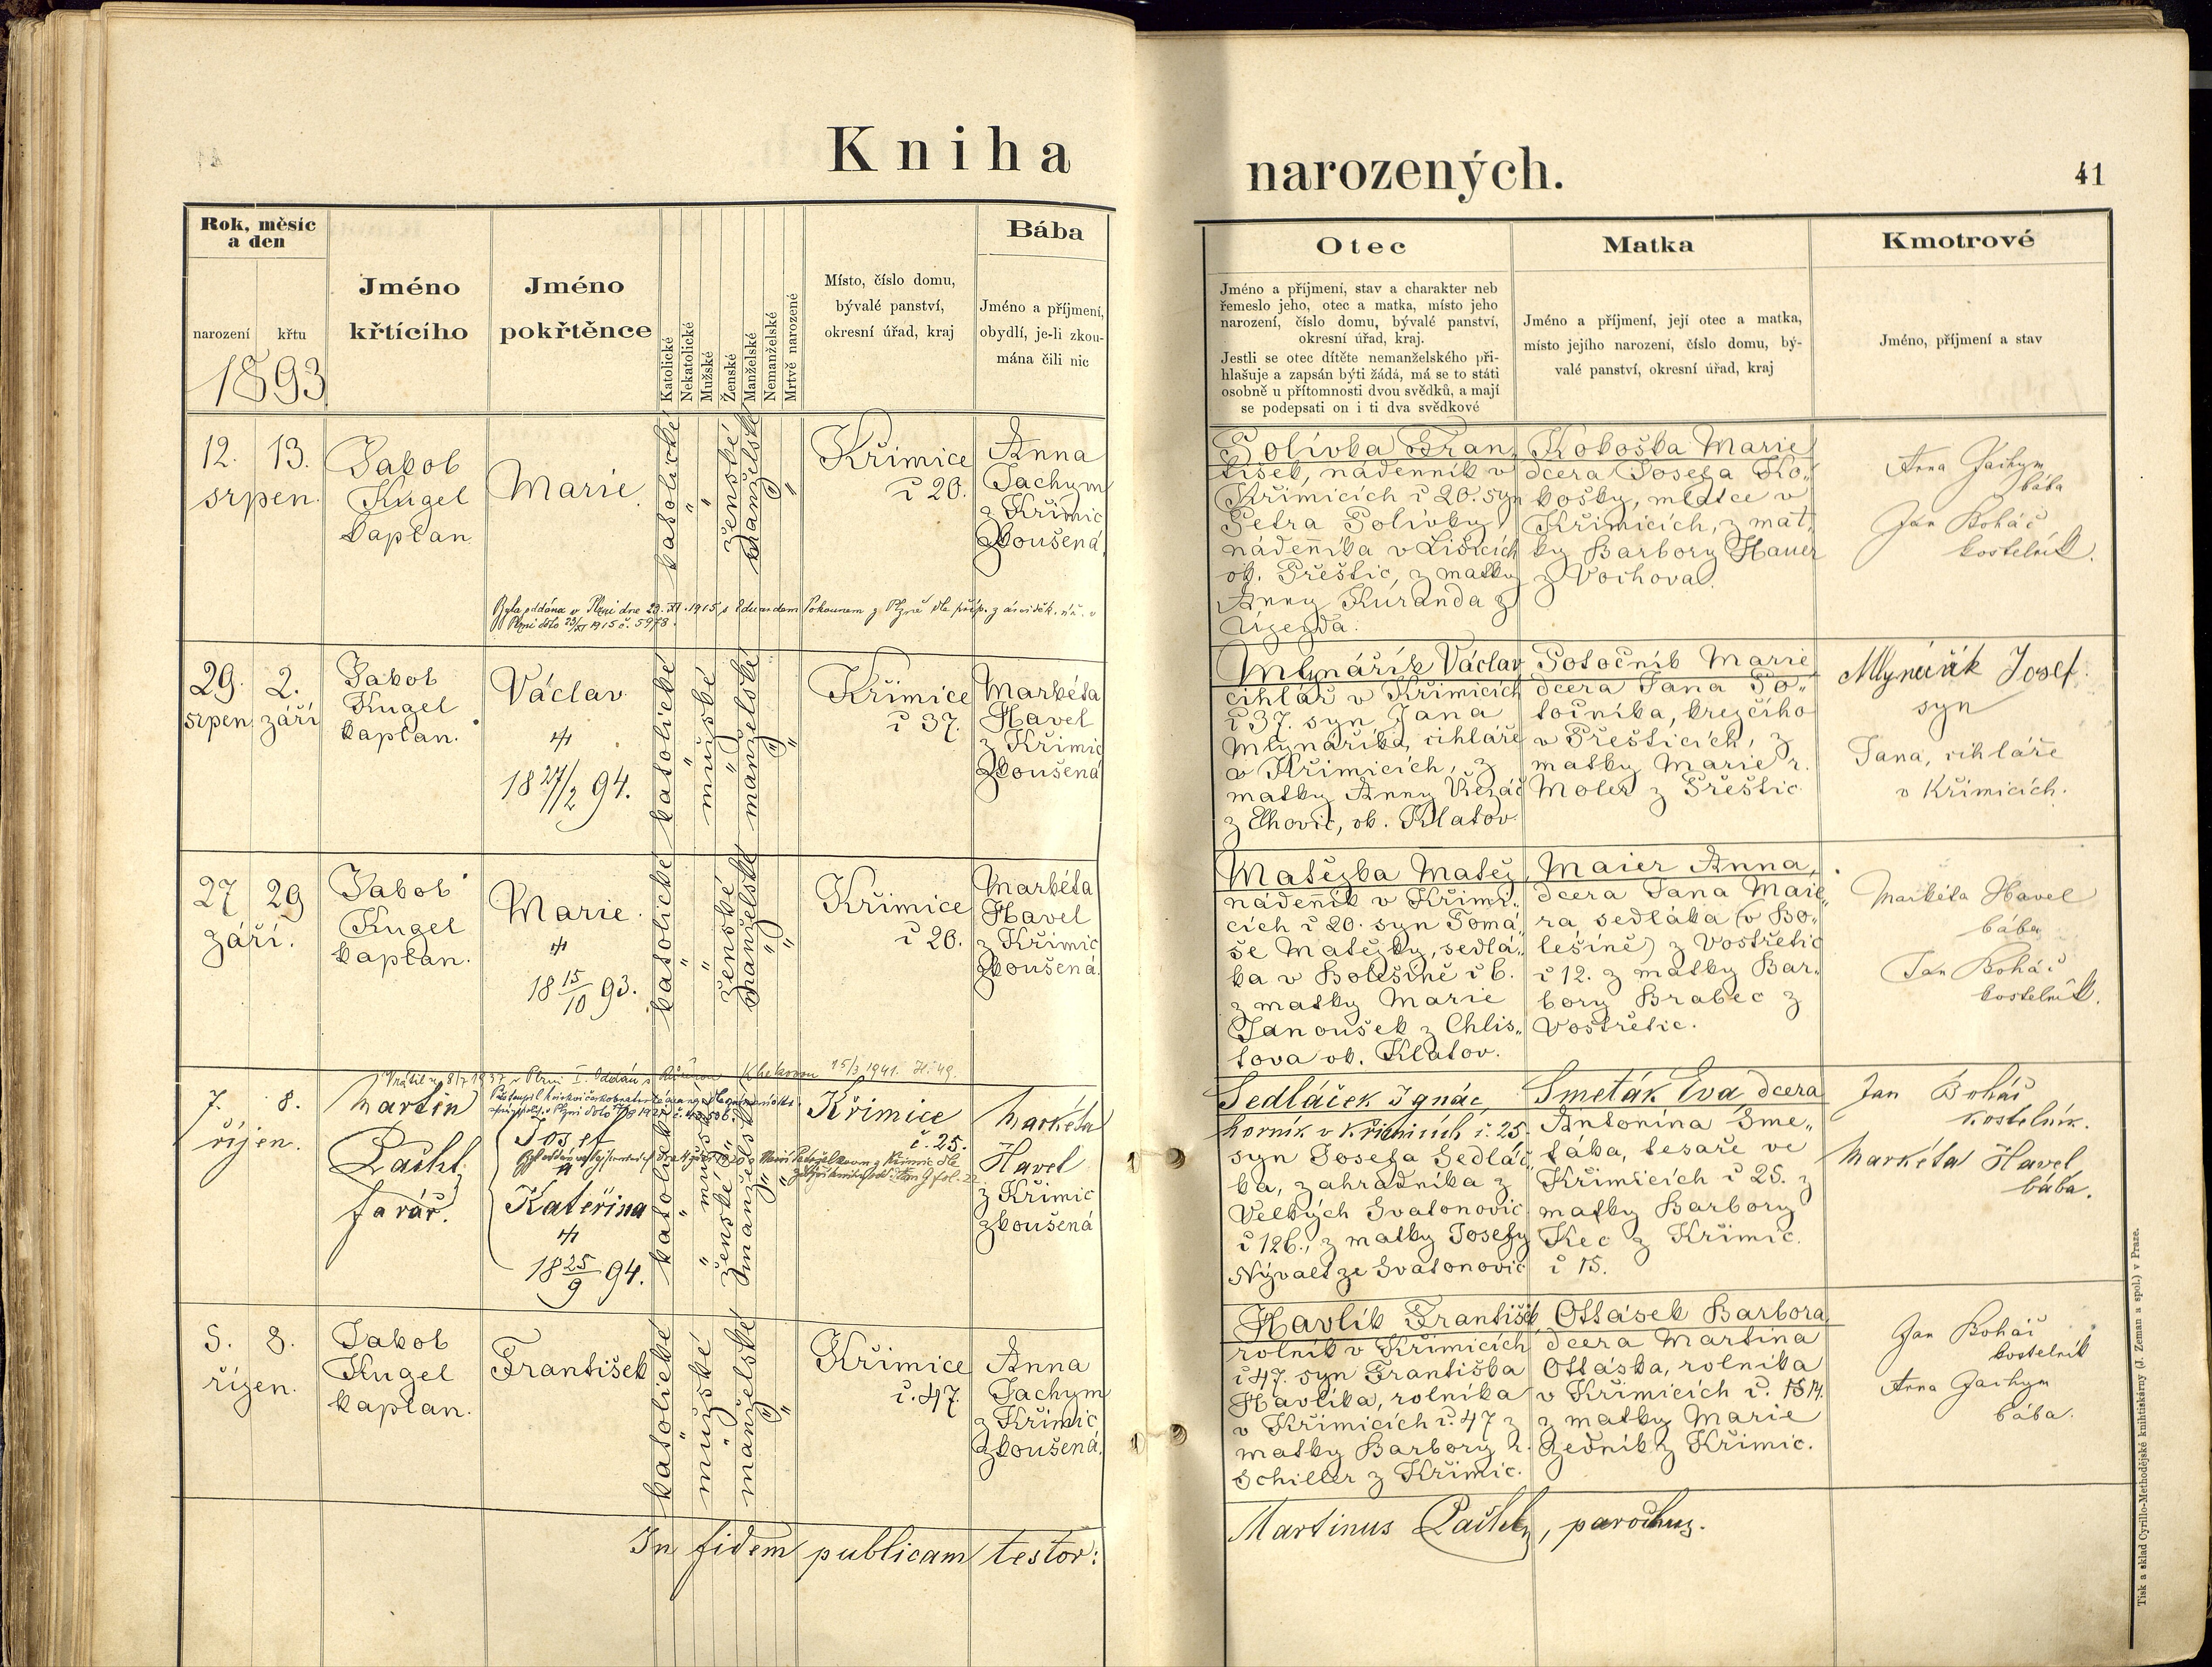 Kniha
narozených.
41
Rok, měsíc
a den
narození
křtu
1893
Jméno
křtícího
Jméno
pokřtěnce
Katolické
Nekatolické
Mužské
Ženské
Manželské
Nemanželské
Mrtvě narozené
Místo, číslo domu,
bývalé panství,
okresní úřad, kraj
Bába
Jméno a příjmení,
obydlí, je-li zkou-
mána čili nic
Otec
Jméno a příjmení, stav a charakter neb
řemeslo jeho, otec a matka, místo jeho
narození, číslo domu, bývalé panství,
okresní úřad, kraj.
Jestli se otec dítěte nemanželského při-
hlašuje a zapsán býti žádá, má se to státi
osobně u přítomnosti dvou svědků, a mají
se podepsati on i ti dva svědkové
Matka
Jméno a příjmení, její otec a matka,
místo jejího narození, číslo domu, bý-
valé panství, okresní úřad, kraj
Kmotrové
Jméno, příjmení a stav
12. 13.
srpen.
Jakob
Kugel
kaplan
Marie
katolické
"
"
ženské
manželské
"
"
Křimice
č 20.
Anna
Jachym
z Křimic
zkoušená.
Byla oddána v Plzni dne 29.XI.1915 s Eduardem Pokounem z Plzně dle
Plzni dto 23/XI 1915 č. 5978.
Polívka Fran„
tišek, nádenník v
Křimicích č 20. syn
Petra Polívky
nádenníka v Lišicích
ok. Přeštic, z matky
Anny Kuranda z
Újezda.
Kokoška Marie
dcera Josefa Ko„
košky, mlatce v
Křimicích, z mat„
ky Barbory Hauer
z Vochova.
Anna Jachym
bába
Jan Boháč
kostelník.
29. 2.
srpen září
Jakob
Kugel
kaplan.
Václav
18 27/2 94.
katolické
"
mužské
"
manželské
"
"
Křimice
č 37.
Markéta
Havel
z Křimic
zkoušená
Mlynářík Václav
cihlář v Křimicích
č 37. syn Jana
Mlynáříka, cihláře
v Křimicích, z
matky Anny Řezáč
z Elhovic, ok. Klatov.
Potočník Marie
dcera Jana Po„
točníka, krejčího
v Přešticích, z
matky Marie r.
Moler z Přeštic
Mlynařík Josef
syn
Jana, cihláře
v Křimicích.
27 29
září.
Jakob
Kugel
kaplan.
Marie.
18 15/10 93.
katolické
"
"
ženské
manželské
"
"
Křimice
č 20.
Markéta
Havel
z Křimic
zkoušená.
Matějka Matěj,
nádenník v Křimi„
cích č 20. syn Tomá„
še Matějky, sedlá„
ka v Bolešině č 6.
z matky Marie
Janoušek z Chlis„
tova ok. Klatov.
Maier Anna,
dcera Jana Maie„
ra sedláka (v Bo„
lešině) z Vostřetic
č 12. z matky Bar„
bory Brabec z
Vostřetic.
Markéta Havel
bába
Jan Boháč
kostelník.
7. 8.
říjen.
Martin
Pachl,
farář.
Josef
a
Kateřina
18 25/9 94.
katolické
"
mužské
"
"
ženské
manželské
"
"
Křimice
č. 25.
Markéta
Havel
z Křimic
zkoušená
Sedláček Ignác,
horník v Křimicích č. 25.
syn Josefa Sedláč„
ka, zahradníka z
Velkých Svatonovic
č 126., z matky Josefy
Nývalt ze Svatonovic
Smeták Eva, dcera
Antonína Sme„
táka, tesaře ve
Křimicích č 25. z
matky Barbory
Kec z Křimic.
č 15.
Jan Boháč
kostelník.
Markéta Havel,
bába.
5. 8.
říjen.
Jakob
Kugel
kaplan.
František
katolické
"
mužské
"
manželské
"
"
Křimice
č. 47.
Anna
Jachym
z Křimic
zkoušená.
Havlík František
rolník v Křimicích
č 47. syn Františka
Havlíka, rolníka
v Křimicích č. 47 z
matky Barbory r.
Schiller z Křimic.
Ottásek Barbora,
dcera Martina
Ottáska, rolníka
v Křimicích č. 14.
z matky Marie
Zedník z Křimic.
Jan Boháč
kostelník
Anna Jachym
bába.
In fidem publicam testor:
Martinus, parochus.
Tisk a sklad Cyrillo-Methodějské knihtiskárny (J. Zeman a spol.) v Praze.